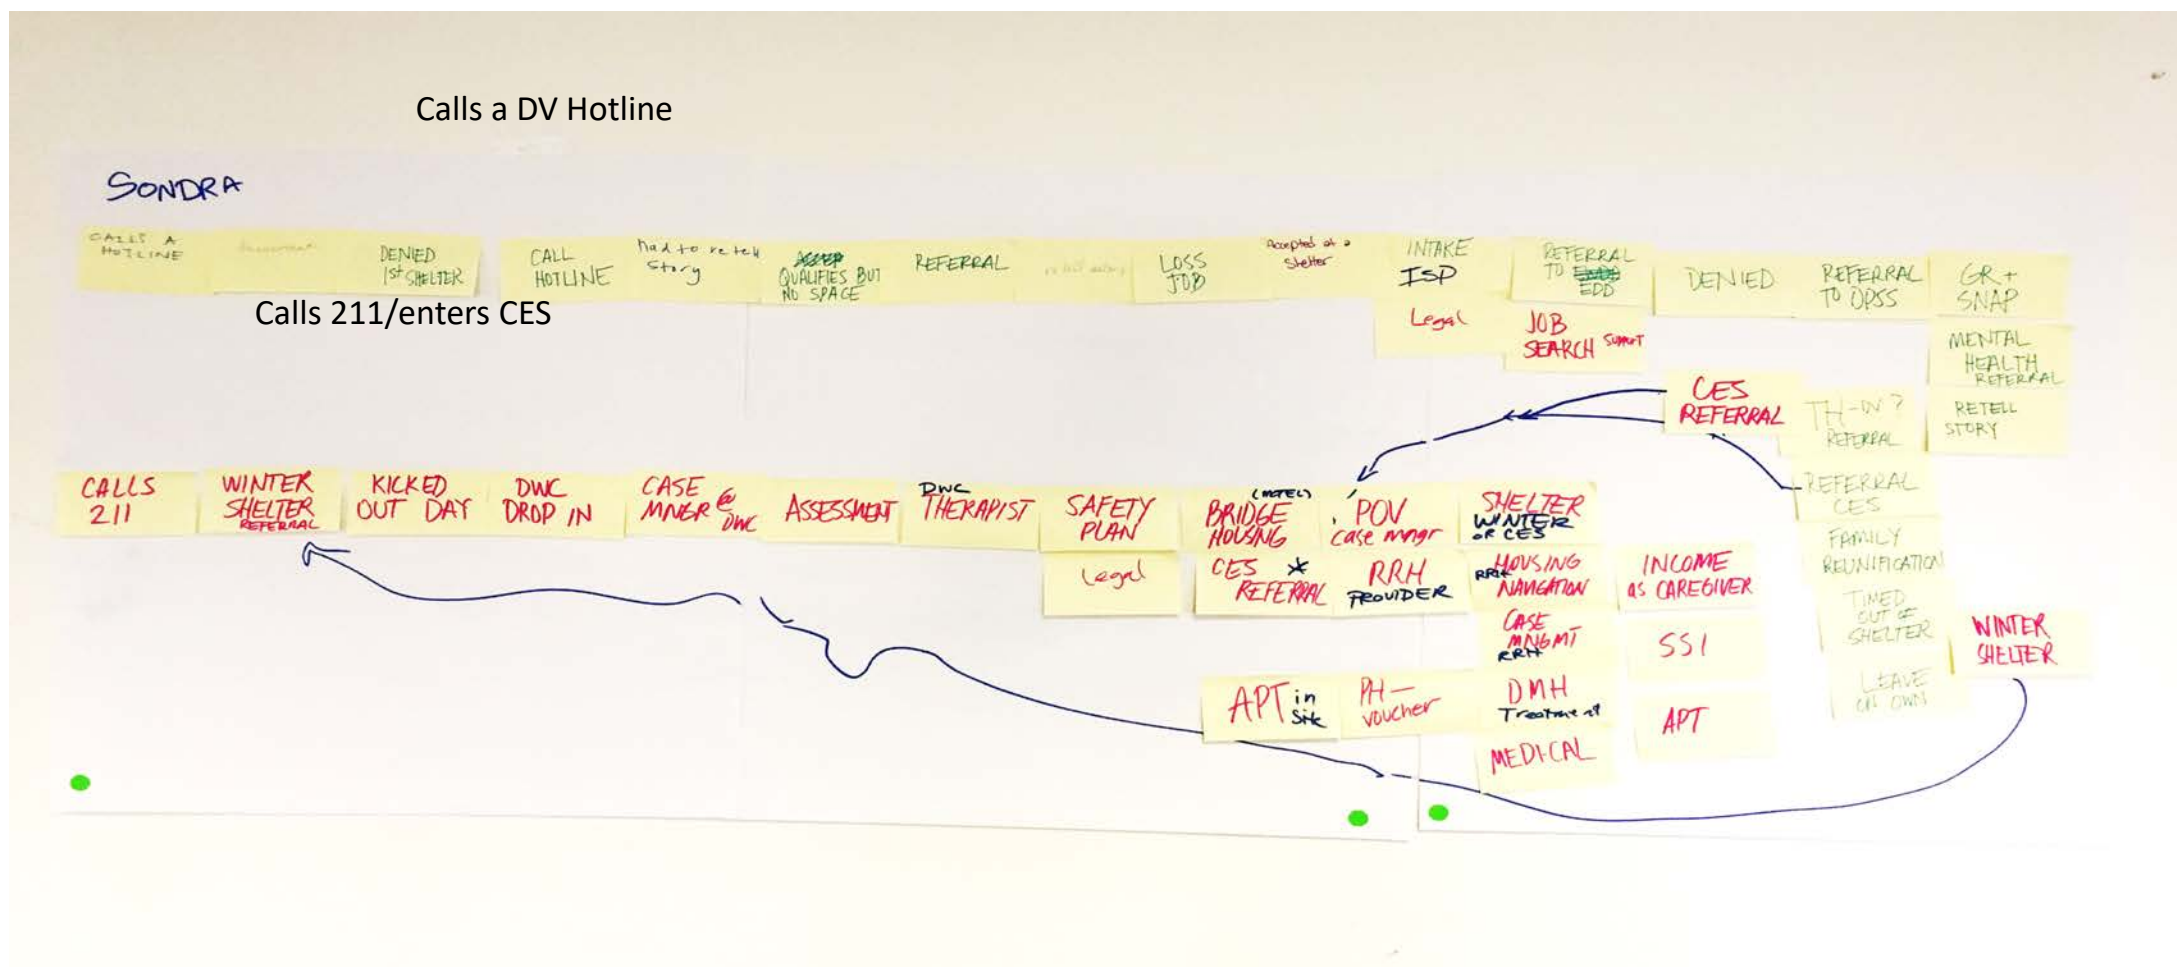 Calls a DV Hotline
SONDRA
CALLS A
HOTLINE
DENIED
1st SHELTER
CALL
HOTLINE
had to retell
story
QUALIFIES BUT
NO SPACE
REFERRAL
LOSS
JOB
Accepted at a
Shelter
INTAKE
ISP
REFERRAL
TO
EDD
DENIED
REFERRAL
TO DPSS
GR +
SNAP
Calls 211/enters CES
Legal
JOB
SEARCH SUPPORT
MENTAL
HEALTH
REFERRAL
CES
REFERRAL
TH-IV?
REFERRAL
RETELL
STORY
CALLS
211
WINTER
SHELTER
REFERRAL
KICKED
OUT DAY
DWC
DROP IN
CASE
MNGR @
DWC
ASSESSMENT
DWC
THERAPIST
SAFETY
PLAN
(MOTEL)
BRIDGE
HOUSING
POV
case mngr
SHELTER
WINTER
OR CES
REFERRAL
CES
Legal
CES *
REFERRAL
RRH
PROVIDER
RRH HOUSING
NAVIGATION
INCOME
AS CAREGIVER
FAMILY
REUNIFICATION
CASE
MNGMT
RRH
SSI
TIMED
OUT OF
SHELTER
WINTER
SHELTER
APT in
Site
PH-
voucher
DMH
Treatment
APT
LEAVE
ON OWN
MEDICAL